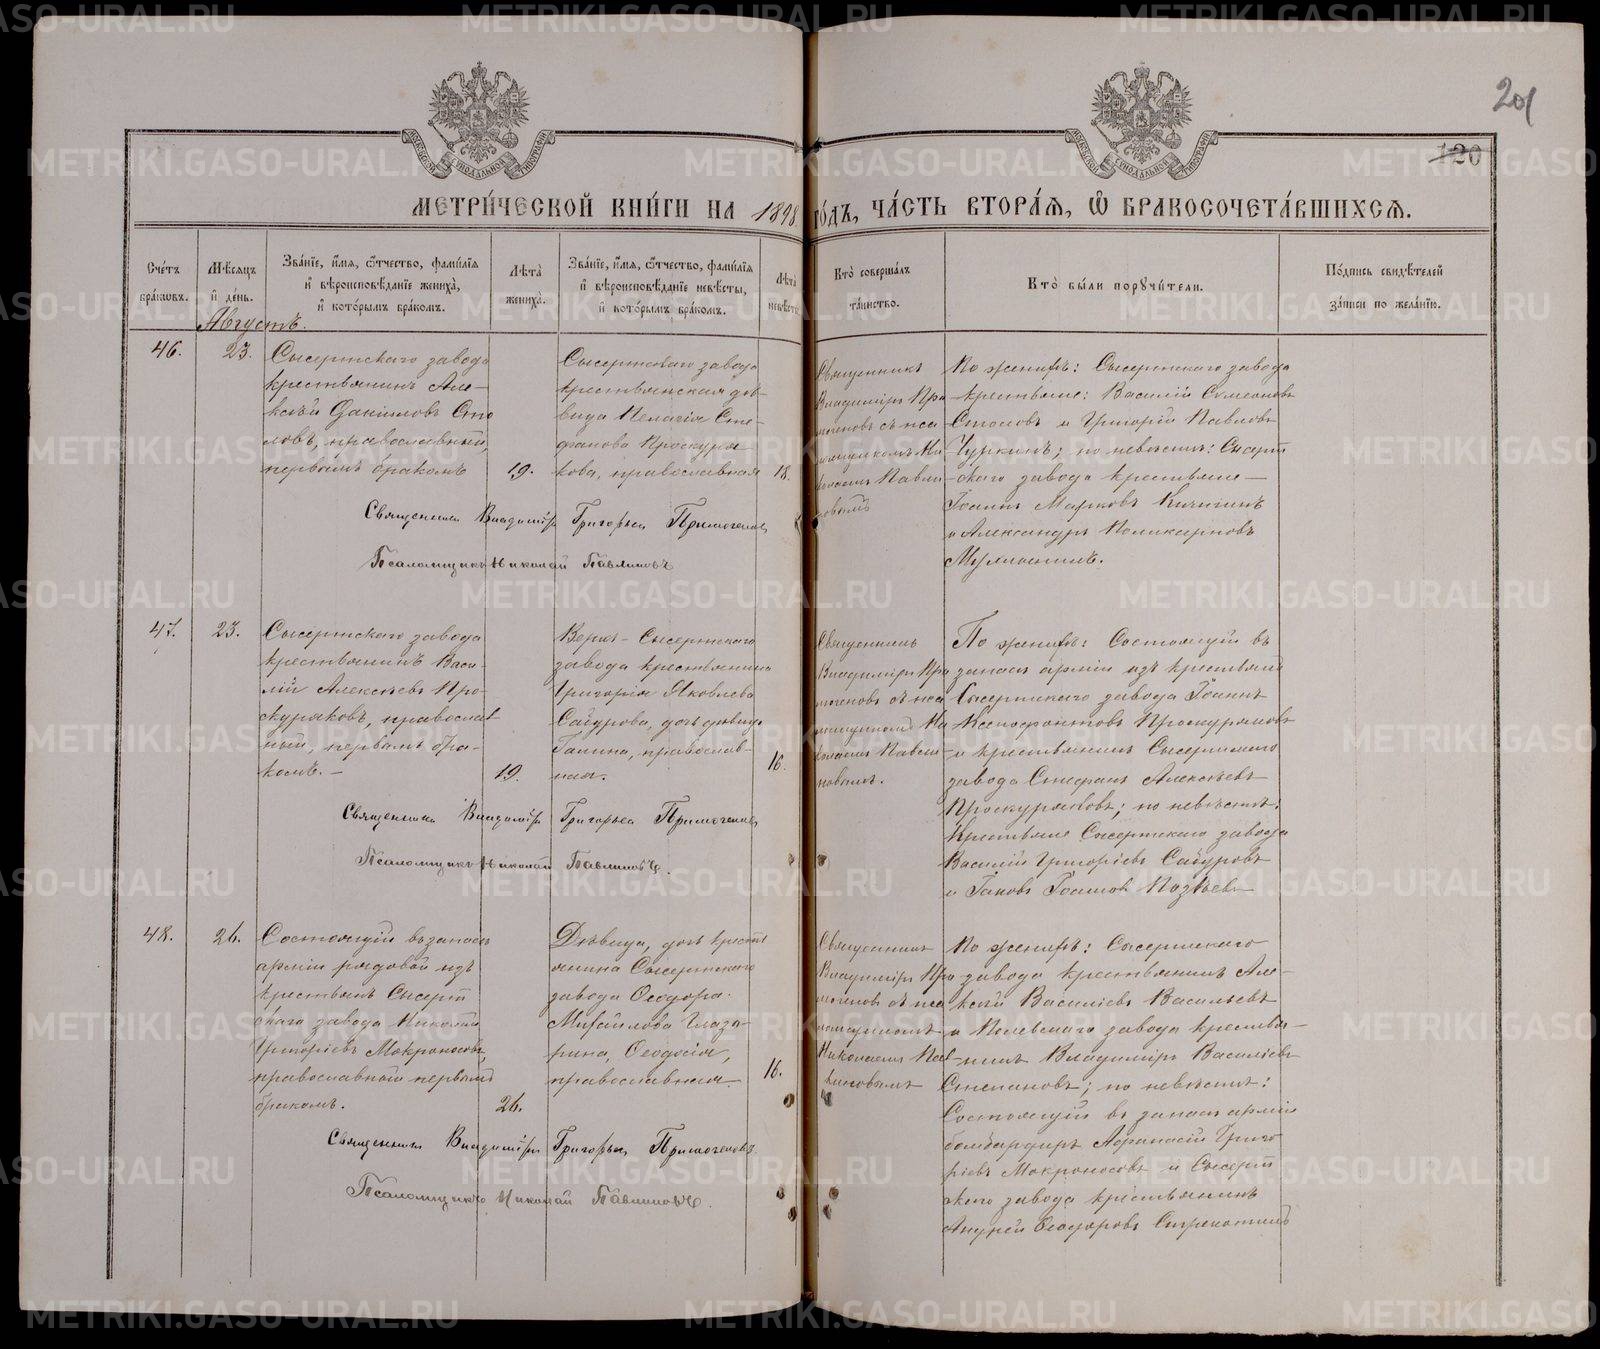 201
120
МЕТРИ́ЧЕСКОЙ КНИ́ГИ НА 1898 ГО́ДЪ, ЧА́СТЬ ВТОРА́Я, Ѡ БРАКОСОЧЕТА́ВШИХСЯ.
Сче́тъ бра́ковъ.
Мѣ́сяцъ и де́нь.
Зва́нїе, и́мя, ѻ́тчество, фами́лїя и вѣроисповѣ́данїе жениха̀, и кото́рымъ бра́комъ.
Лѣ́та жениха̀.
Зва́нїе, и́мя, ѻ́тчество, фами́лїя и вѣроисповѣ́данїе невѣ́сты, и кото́рымъ бра́комъ.
Лѣ́та невѣ́сты
Кто̀ соверша́лъ та́инство.
Кто̀ бы́ли порꙋчи́тели.
По́дпись свидѣ́телей за́писи по жела́нїю.
Августъ.
46.
23.
Сысертскаго завода
крестьянинъ Але-
ксѣй Данииловъ Сто
ловъ, православный,
первымъ бракомъ
19.
Сысертскаго завода
крестьянская дѣ-
вица Пелагія Сте-
фанова Проскуря
кова, православная
18.
Священникъ
Владиміръ При
могеновъ съ пса
ломщикомъ Ни
колаемъ Павли
новымъ
По женихѣ: Сысертскаго завода
крестьяне: Василій Симеоновъ
Столовъ и Григорій Павловъ
Чуркинъ; по невѣстѣ: Сысерт
скаго завода крестьяне
Іоаннъ Марковъ Кичигинъ
и Александръ Поликарповъ
Священникъ Владиміръ Григорьев Примогеновъ
Псаломщикъ Николай Павлиновъ
47.
23.
Сысертскаго завода
крестьянинъ Васи-
лій Алексѣевъ Про-
скуряковъ, православ
ный, первымъ бра-
комъ. -
19.
Верхъ-Сысертскаго
завода крестьянина
Григорія Яковлева
Сабурова, дочь дѣвица
Галина, православ-
ная.
16.
Священникъ
Владиміръ При
могеновъ съ пса
ломщикомъ Ни
колаемъ Павли
новымъ.
По женихѣ: Состоящій въ
запасѣ арміи изъ крестьянъ
Сысертскаго завода Іоаннъ
Ксенофонтовъ Проскуряковъ
и крестьянинъ Сысертскаго
завода Стефанъ Алексѣевъ
Проскуряковъ; по невѣстѣ:
Крестьяне Сысертскаго завода
Василій Григоріевъ Сабуровъ
и Іаковъ Іоанновъ
Священника Владиміръ Григорьев Примогеновъ
Псаломщикъ Николай Павлиновъ.
48.
26.
Состоящій въ запасѣ
арміи рядовой изъ
крестьянъ Сысерт
скаго завода Николай
Григоріевъ Мокроносовъ,
православный первымъ
бракомъ.
26.
Дѣвица, дочь кресть
янина Сысертскаго
завода Ѳеодора
Михайлова Глаза-
рина, Ѳеодосія,
православная.
16.
Священникъ
Владиміръ При
могеновъ съ пса
ломщикомъ
Николаемъ Пав
линовымъ
По женихѣ: Сысертскаго
завода крестьянинъ Але-
ксѣй Василіевъ Васильевъ
и Полевскаго завода крестья-
нинъ Владиміръ Василіевъ
Степановъ; по невѣстѣ:
Состоящій въ запасѣ арміи
бомбардиръ Аѳанасій Григо
ріевъ Мокроносовъ и Сысерт
скаго завода крестьянинъ
Андрей Ѳеодоровъ
Священникъ Владиміръ Григорьев Примогеновъ.
Псаломщикъ Николай Павлиновъ.
METRIKI.GASO-URAL.RU